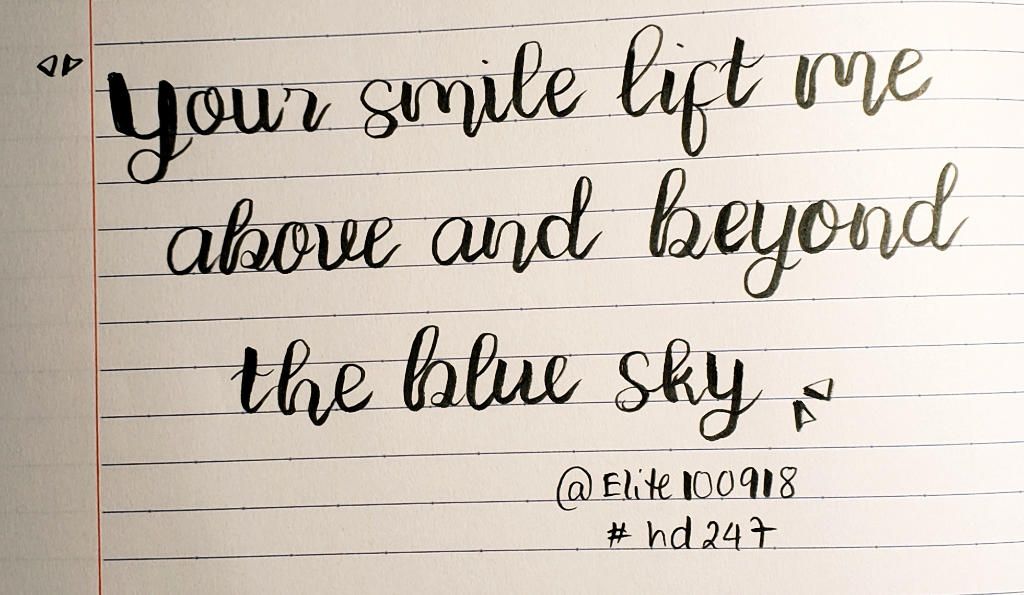 Your smile lift me
above and beyond
the blue sky
@Elite100918
#hd247